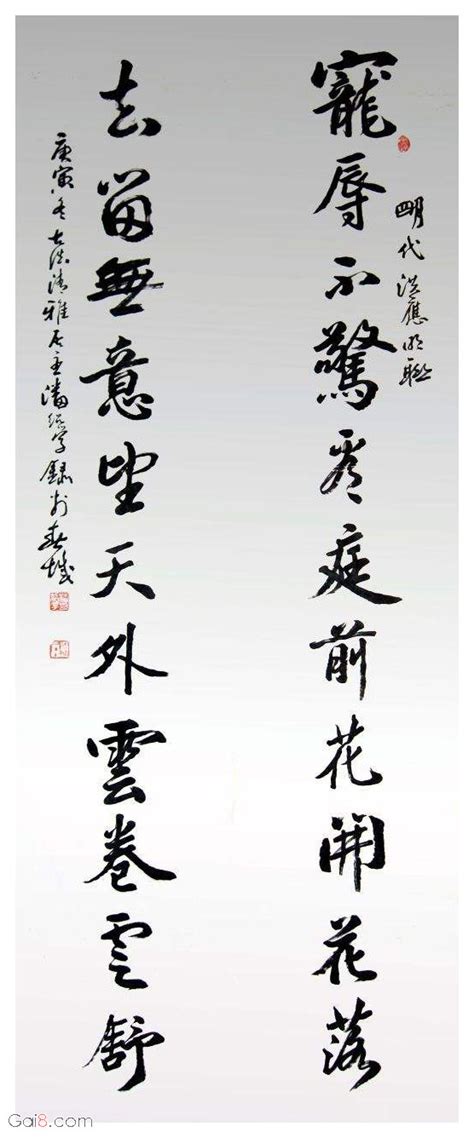 寵辱不驚看庭前花開花落
明代洪應明聯
去留無意望天外雲卷雲舒
庚寅冬清雅居主潘学錄於春城
Gai8.com